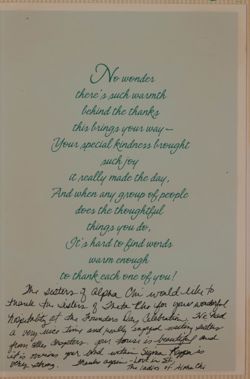 No wonder
there's such warmth
behind the thanks
this brings your way—
Your special kindness brought
such joy
it really made the day,
And when any group of people
does the thoughtful
things you do,
It's hard to find words
warm enough
to thank each one of you!
The sisters of Alpha Chi would like to
thank the sisters of Theta Chi for your wonderful
hospitality at the Founders Day Celebration. We had
a very nice time and really enjoyed meeting sisters
from other chapters. Your house is beautiful and
it is obvious your bond within Sigma Kappa is
very strong. Thanks again - Love in
The Ladies of Alpha Chi